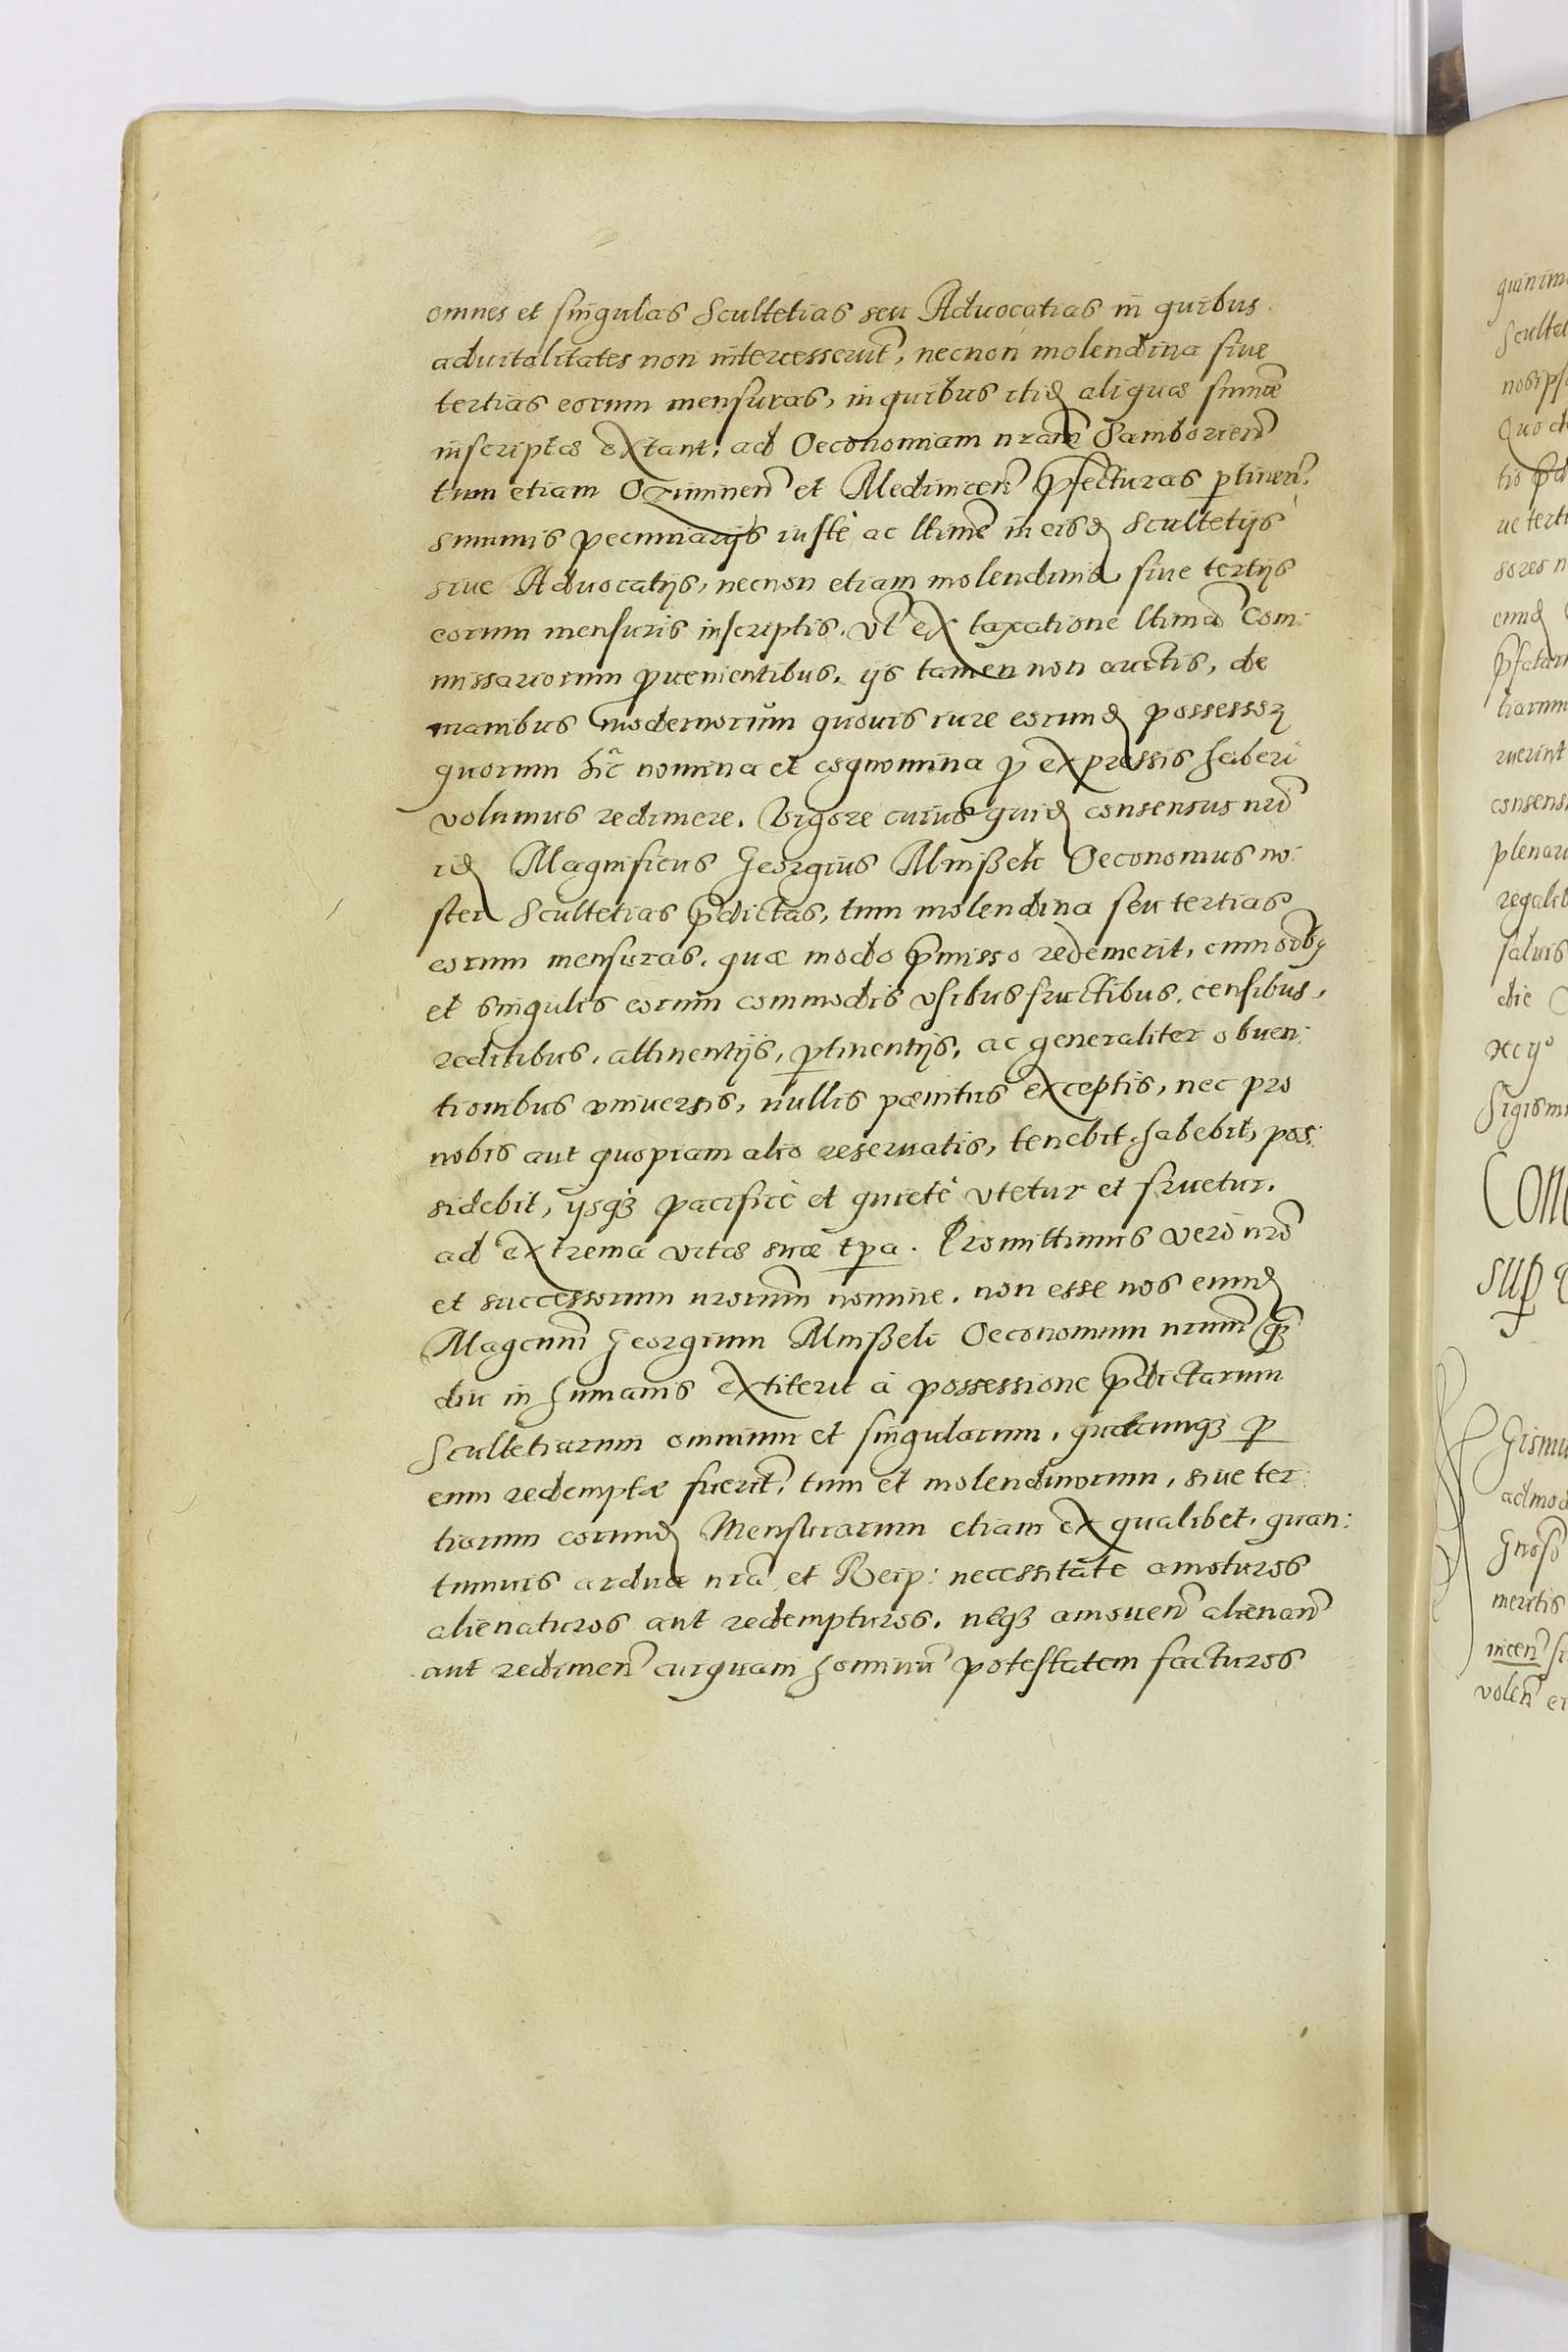 omnes et singulas Scultetias seu Aduocatias in quibus
aduitalitates non intercesserut̃, necnon molendina siue
tertias eorum mensuras, in quibus itid aliquæ summæ
inscriptæ extant, ad Oeconomiam nram̃ Samborien̄
tum etiam Oziminen̄ et Medinicen̄ p̄fecturas ꝑtinen̄.
summis pecuniarijs iustè ac ltimē in eisd Scultetijs
siue Aduocatijs, necnon etiam molendinis, siue tertijs
eorum mensuris inscriptis. vt̃ ex taxatione ltima Com:
missariorum ꝓuenientibus, ijs tamen non auctis, de
manibus modernorum quouis iure eorund possessoꝝ
quorum hic̃ nomina et cognomina ꝓ expressis haberi
volumus redimere. Vigore cuius quid consensus nri̅
id Magnificus Georgius Mnißek Oeconomus no:
ster Scultetias p̄dictas, tum molendina seu tertias
eorum mensuras, quæ modo p̄misso redemerit, cum oībꝫ
et singulis eorum commodis vsibus fructibus, censibus,
reditibus, attinentijs, ꝑtinentijs, ac generaliter obuen:
tionibus vniuersis, nullis pænitus exceptis, nec pro
nobis aut quopiam alio reseruatis, tenebit, habebit, pos:
sidebit, ijsqꝫ pacificè et quietè vtetur et fruetur,
ad extrema vitæ suæ tpa. Promittimus verò nro̅
et successorum nrorum̅ nomine, non esse nos eund
Magcum̅ Georgium Mnißek Oeconomum nrum̅ qꝫ
diu in humanis extiterit à possessione p̄dictarum
Scultetiarum omnium et singularum, quæcunqꝫ ꝑ
eum redemptæ fuerit̃, tum et molendinorum, siue ter:
tiarum eorund Mensurarum etiam ex qualibet, quan:
tumuis ardua nra̅ et Reip: necessitate amoturos
alienaturos aut redempturos, neqꝫ amouen̄ alienan̄
aut redimen̄ cuiquam hominū potestatem facturos